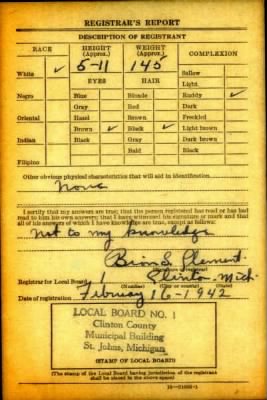 REGISTRAR'S REPORT
DESCRIPTION OF REGISTRANT
RACE HEIGHT (Approx.) WEIGHT (Approx.) COMPLEXION
White ✓ 5-11 145 Sallow
EYES HAIR Light
Negro Blue Blonde Ruddy ✓
Gray Red Dark
Oriental Hazel Brown Freckled
Brown ✓ Black ✓ Light brown
Indian Black Gray Dark brown
Bald Black
Filipino
Other obvious physical characteristics that will aid in identification
None
I certify that my answers are true; that the person registered has read or has had
read to him his own answers; that I have witnessed his signature or mark and that
all of his answers of which I have knowledge are true, except as follows:
not to my knowledge
Registrar for Local Board 1 Clinton Mich.
(Number) (City or county) (State)
Date of registration February 16-1942
LOCAL BOARD NO. 1
Clinton County
Municipal Building
St. Johns, Michigan
(STAMP OF LOCAL BOARD)
(The stamp of the Local Board having jurisdiction of the registrant
shall be placed in the above space)